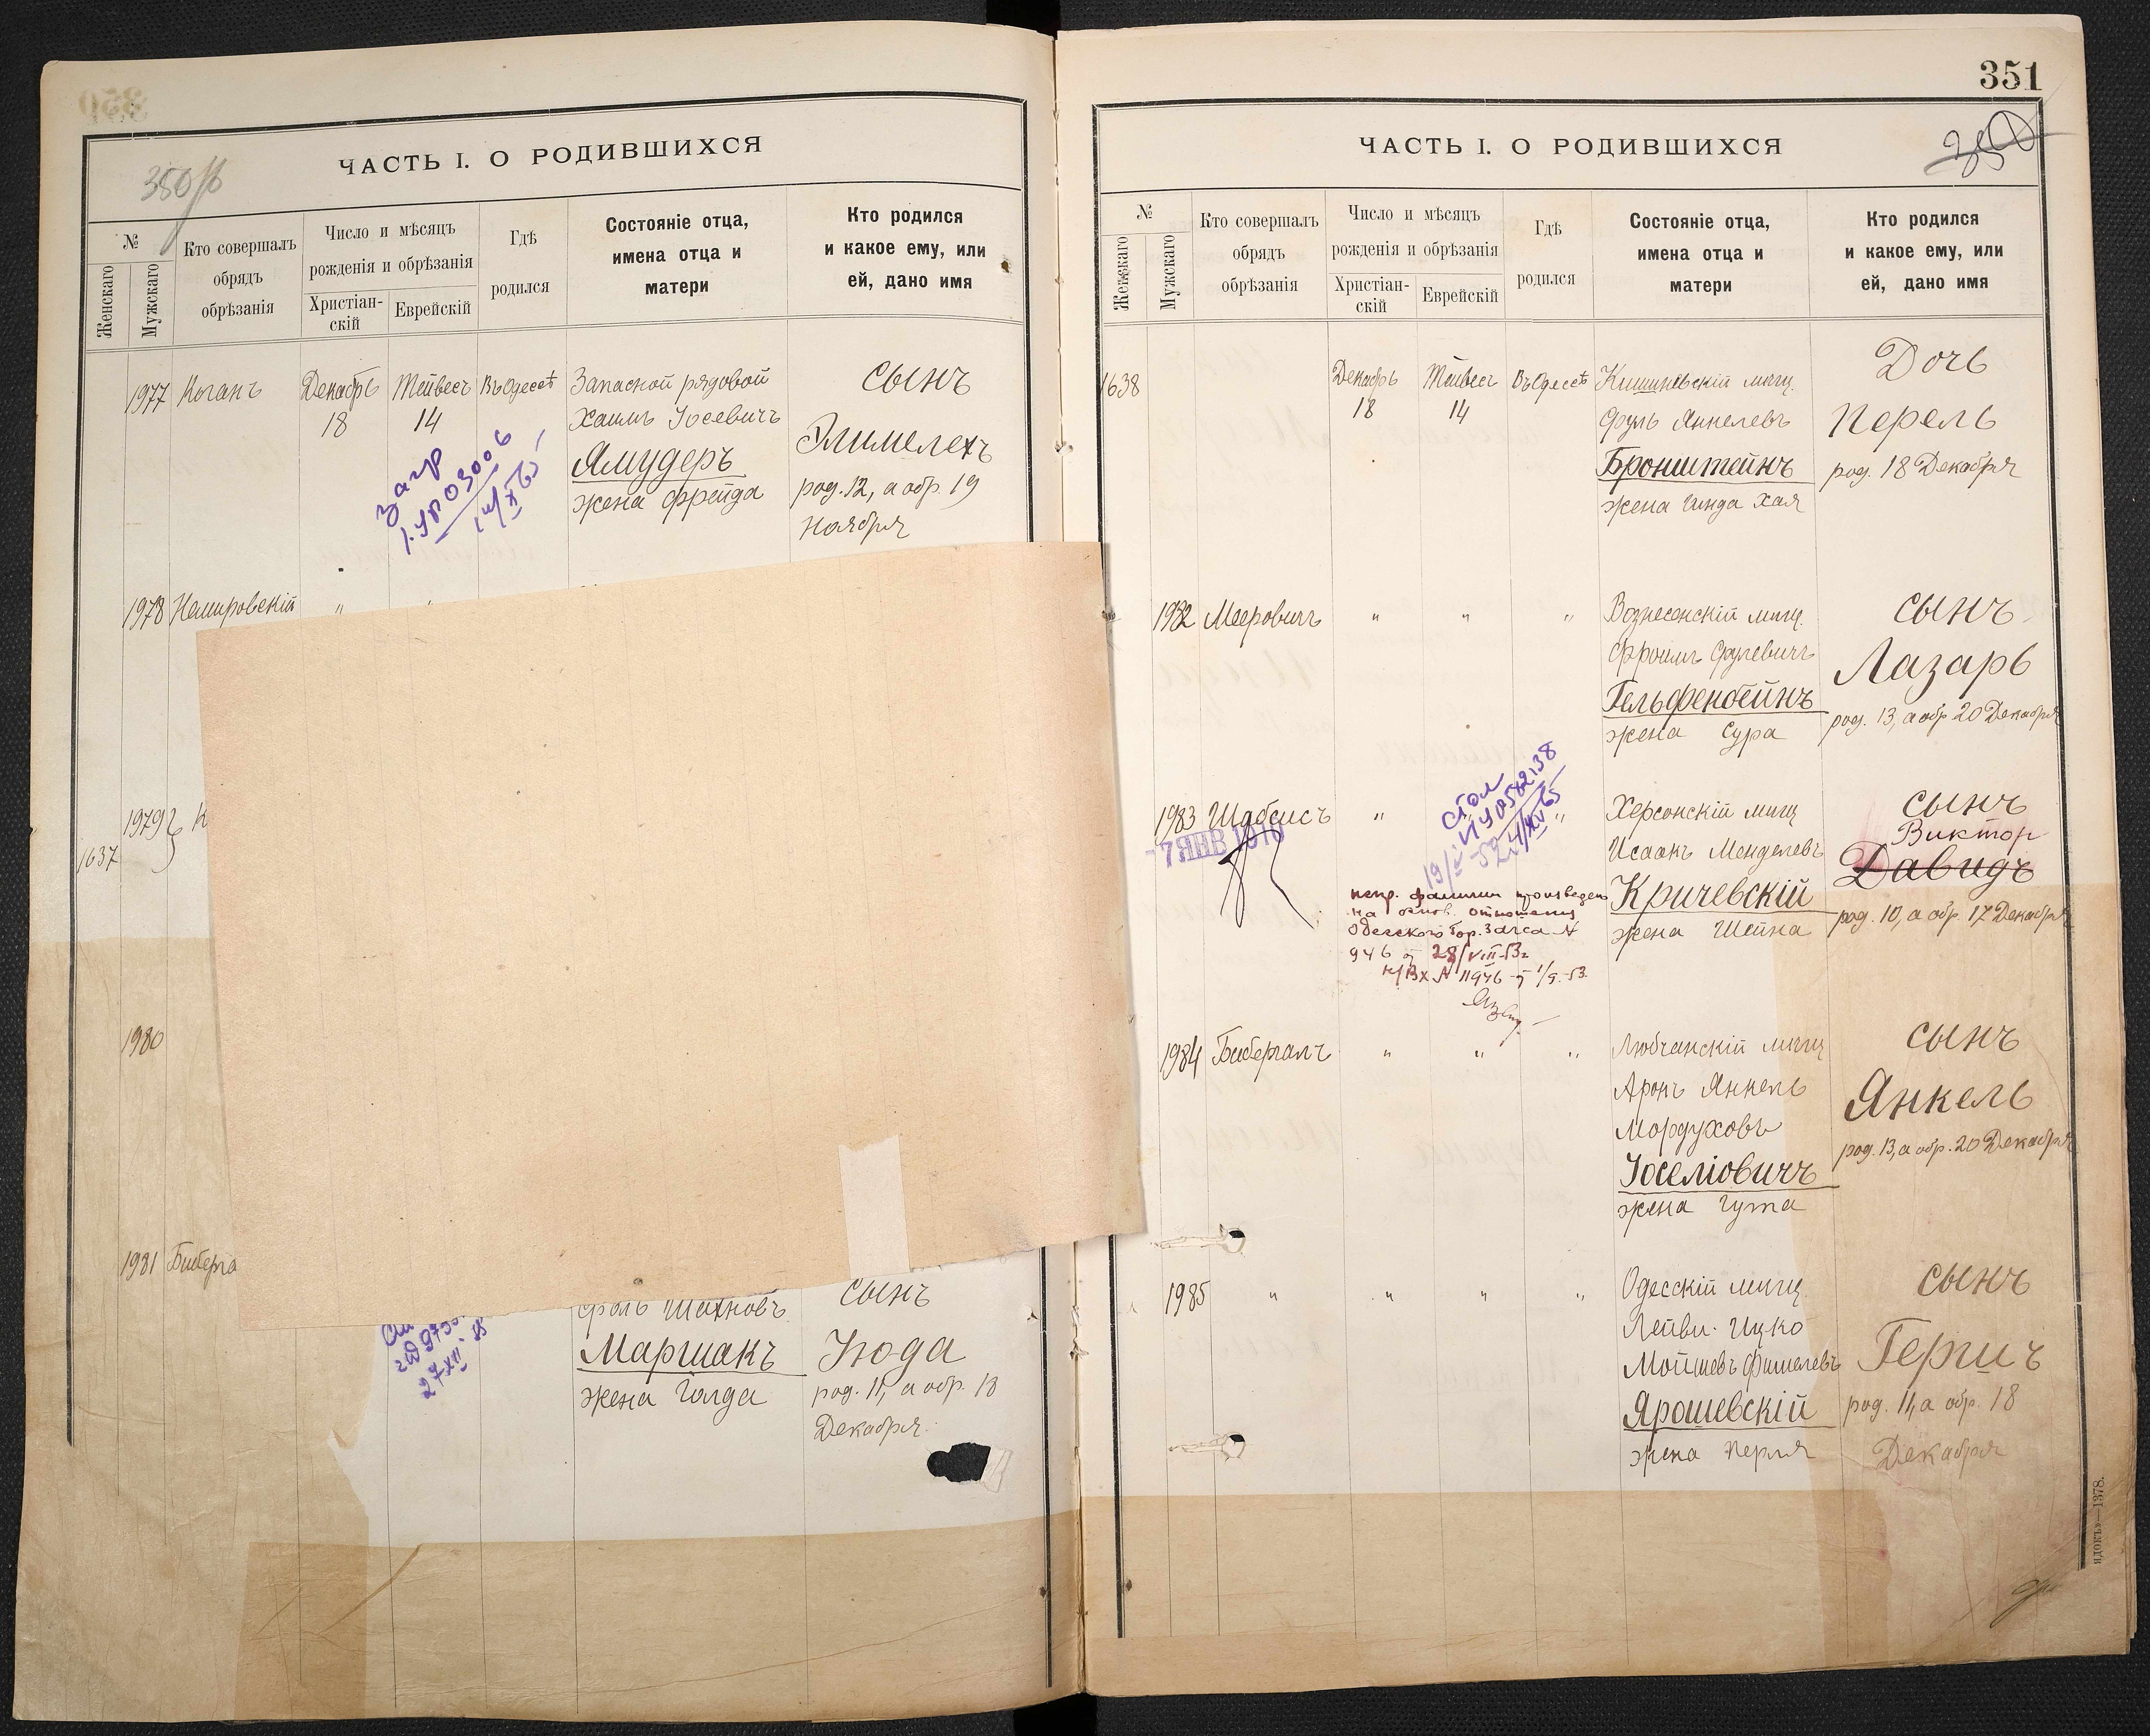 350
350 об
ЧАСТЬ I. О РОДИВШИХСЯ
№
Женскаго
Мужскаго
Кто совершалъ
обрядъ
обрѣзанія
Число и мѣсяцъ
рожденія и обрѣзанія
Христіан-
скій
Еврейскій
Гдѣ
родился
Состояніе отца,
имена отца и
матери
Кто родился
и какое ему, или
ей, дано имя
1977 Коганъ
Декабрь
18
Тейвесъ
14
Въ Одессѣ
Запасной рядовой
Хаимъ Іосевичъ
Ямудеръ
жена Фрейда
сынъ
Элимелехъ
род. 12, а обр. 19
Ноября
загр
1978 Немировскій "
1979 К
1637
1980
1981 Биберга
Шахновъ
Маршакъ
жена Голда
сынъ
Іюда
род. 11, а обр. 18
Декабря.
27/XII
351
350
ЧАСТЬ I. О РОДИВШИХСЯ
№
Женскаго
Мужскаго
Кто совершалъ
обрядъ
обрѣзанія
Число и мѣсяцъ
рожденія и обрѣзанія
Христіан-
скій
Еврейскій
Гдѣ
родился
Состояніе отца,
имена отца и
матери
Кто родился
и какое ему, или
ей, дано имя
1638
Декабрь
18
Тейвесъ
14
Въ Одессѣ
Кишиневскій мѣщ.
Сруль Янкелевъ
Бронштейнъ
жена Гинда Хая
Дочь
Перель
род. 18 Декабря
1982 Мееровичъ " " "
Вознесенскій мѣщ.
Фроимъ Срулевичъ
Гельфенбейнъ
жена Сура
сынъ
Лазарь
род. 13, а обр. 20 Декабря
1983 Шабсисъ " "
7 ЯНВ 1910
Херсонскій мѣщ
Исаакъ Менделевъ
Кричевскій
жена Шейна
сынъ
Виктор
Давидъ
род. 10, а обр. 17 Декабря
испр. фамилии произведено
на основ. отношения
Одесского Гор. Загса N
946 от 28/VIII-53г
Н/Вх N 11946 от 1/9-53
1984 Бибергалъ " " "
Любчанскій мѣщ
Аронъ Янкель
Мордуховъ
Іоселіовичъ
жена Гута
сынъ
Янкель
род. 13, а обр. 20 Декабря
1985 " " " "
Одесскій мѣщ.
Лейви-Ицко
Мойшевъ Фишелевъ
Ярошевскій
жена Перля
сынъ
Гершъ
род. 11, а обр. 18
Декабря
—1378.